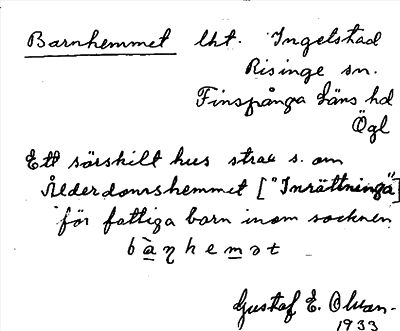 Barnhemmet lht. Ingelstad
Risinge sn.
Finspånga läns hd
Ögl
Ett särskilt hus strax s. om
Ålderdomshemmet ["Inrättninga"]
för fattiga barn inom socknen
bàṇhemət
Gustaf E. Olsson.
1933